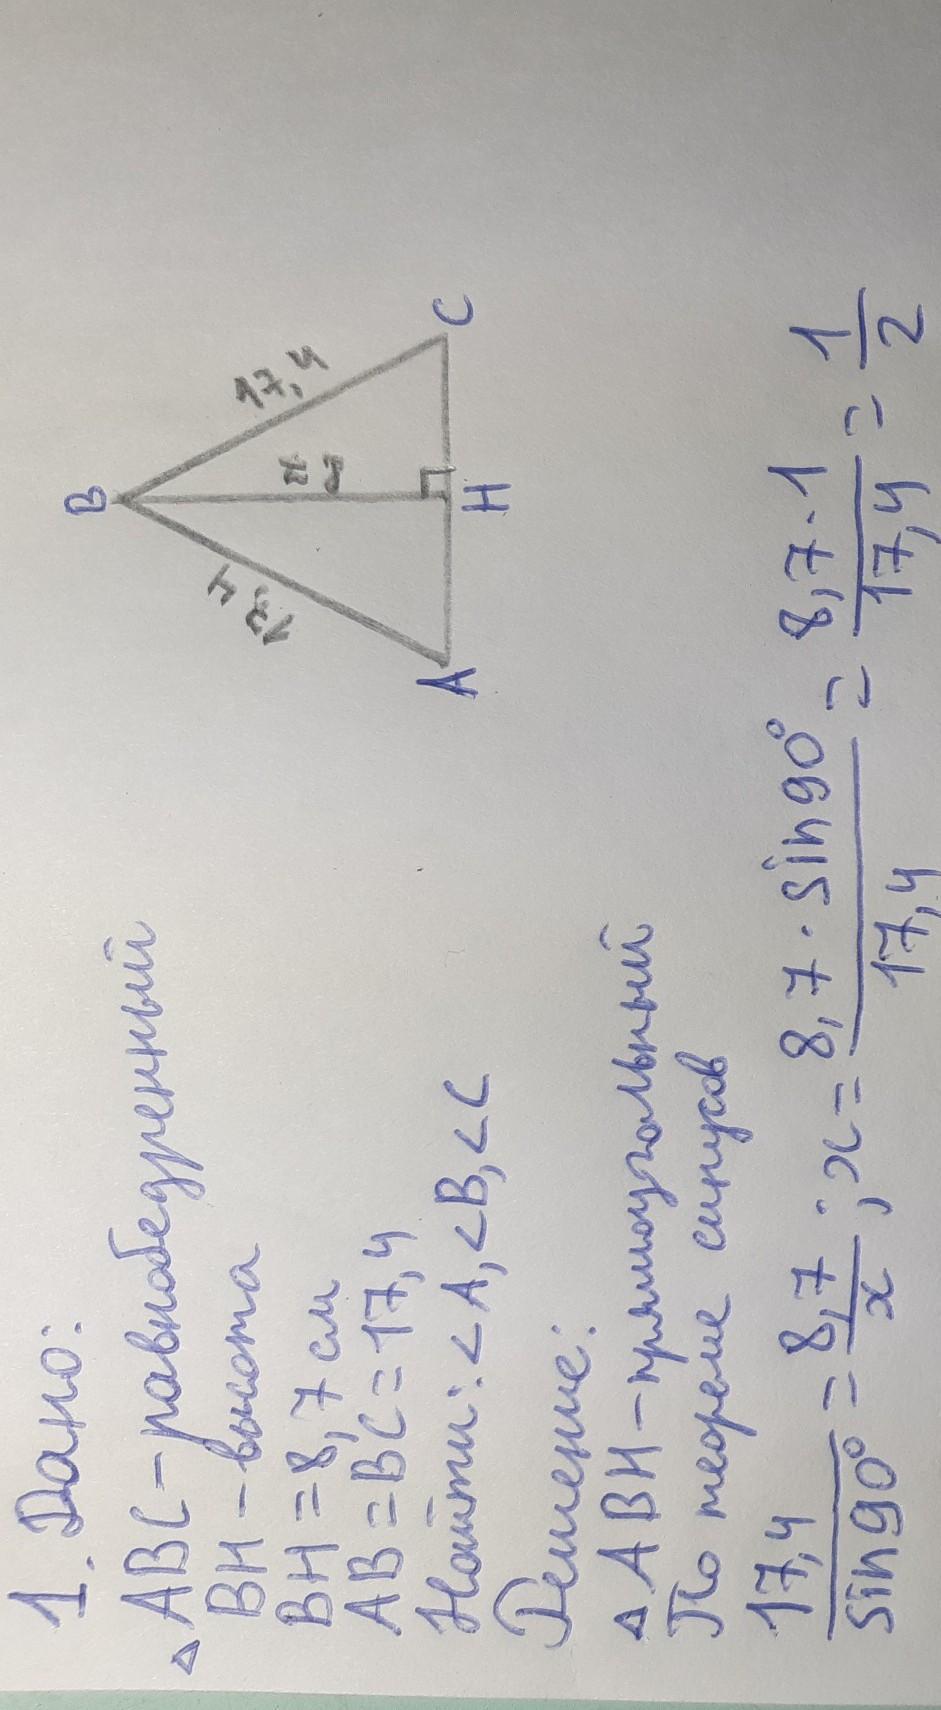 1. Дано:
△ ABC - равнобедренный
BH - высота
BH = 8,7 см
AB = BC = 17,4
Найти: <A, <B, <C
B
17,4
17,4
A
H
C
Решение:
△ ABH - прямоугольный
По теореме синусов
17,4/sin90° = 8,7/x ; x = 8,7 · sin90°/17,4 = 8,7 · 1/17,4 = 1/2